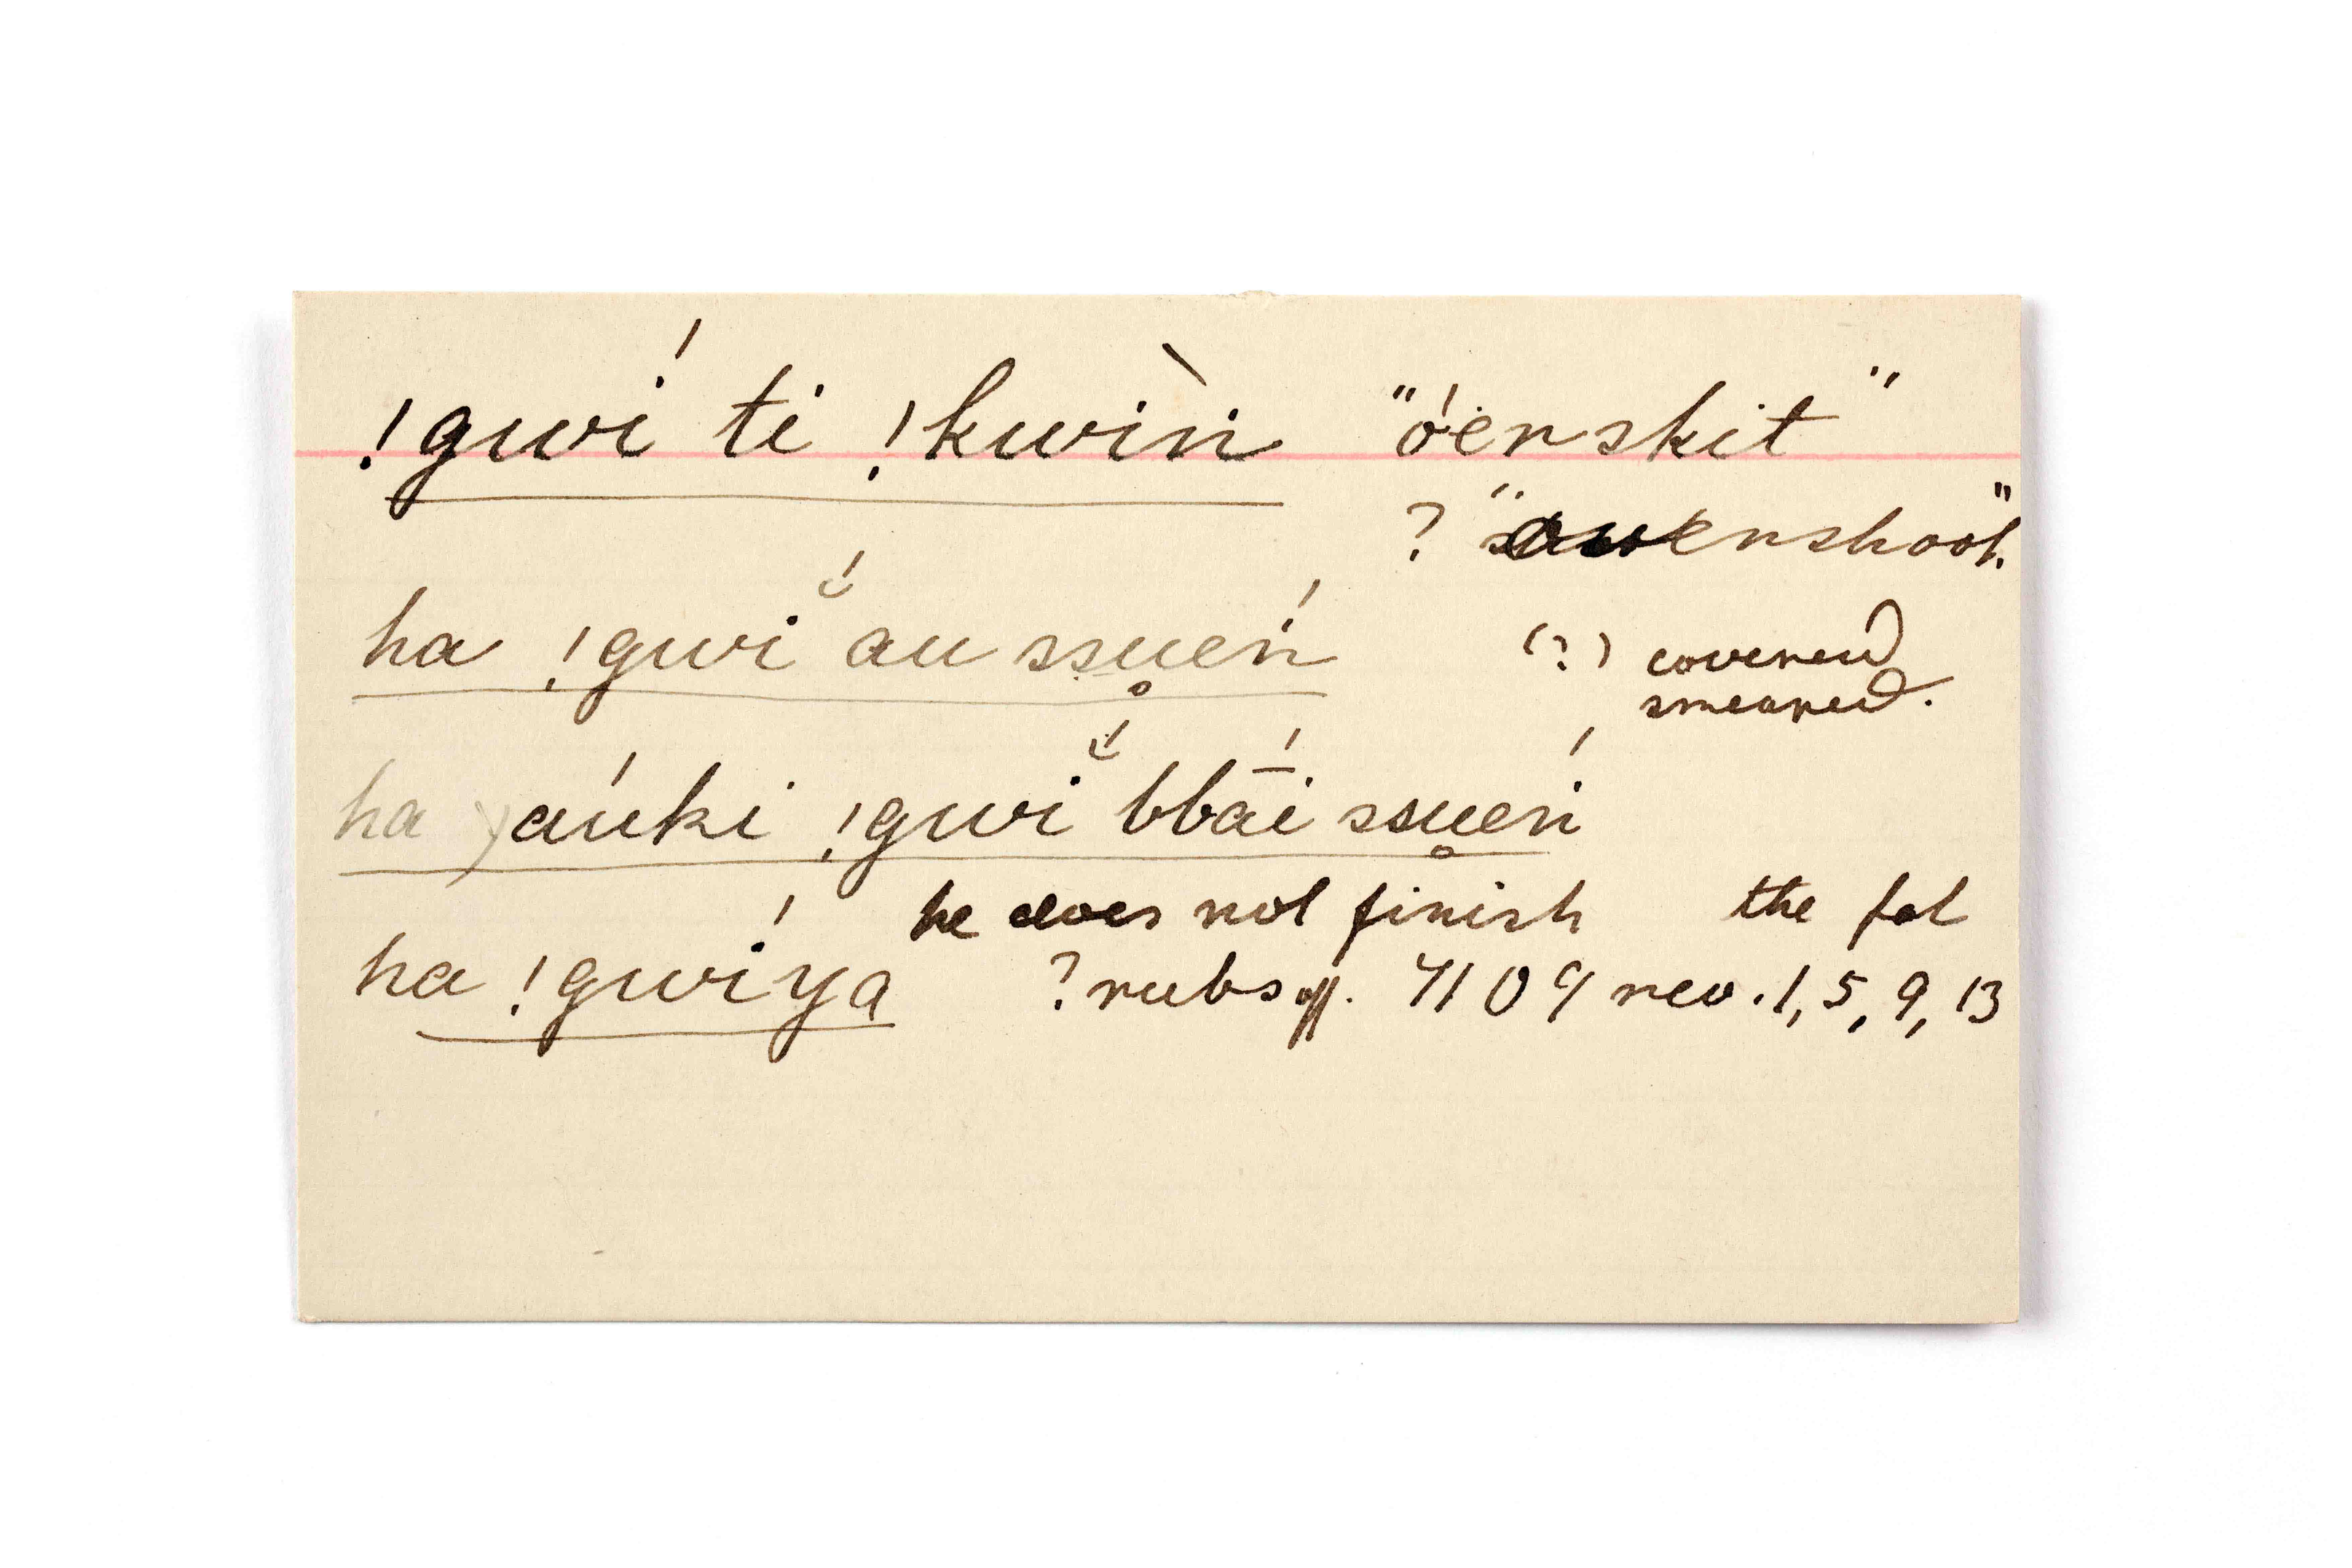 !gwí ti !kwìn "óënskit"
? " enshoot."
ha !gwĭ́ au ssu̥eń (?) covered
smeared.
ha )aúki !gwĭ́ bbā́i ssu̥eń
he does not finish the fat
ha !gwíya ? rubs off. 7109 rev. 1, 5, 9, 13